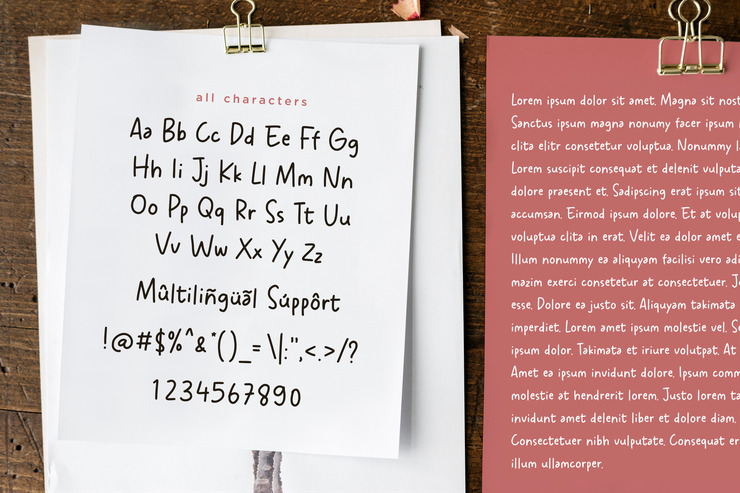 all characters
Aa Bb Cc Dd Ee Ff Gg
Hh Ii Jj Kk Ll Mm Nn
Oo Pp Qq Rr Ss Tt Uu
Vv Ww Xx Yy Zz
Mûltilíñgüãl Súppôrt
!@#$%^&*()_=\|:",<.>/?
1234567890
Lorem ipsum dolor sit amet. Magna sit
Sanctus ipsum magna nonumy facer ipsum
clita elitr consetetur voluptua. Nonummy
Lorem suscipit consequat et delenit
dolore praesent et. Sadipscing erat ipsum
accumsan. Eirmod ipsum dolore. Et at
voluptua clita in erat. Velit ea dolor amet
Illum nonummy ea aliquyam facilisi vero
mazim exerci consetetur at consectetuer.
esse. Dolore ea justo sit. Aliquyam takimata
imperdiet. Lorem amet ipsum molestie vel.
ipsum dolor. Takimata et iriure volutpat. At
Amet ea ipsum invidunt dolore. Ipsum
molestie at hendrerit lorem. Justo lorem
invidunt amet delenit liber et dolore diam.
Consectetuer nibh vulputate. Consequat
illum ullamcorper.